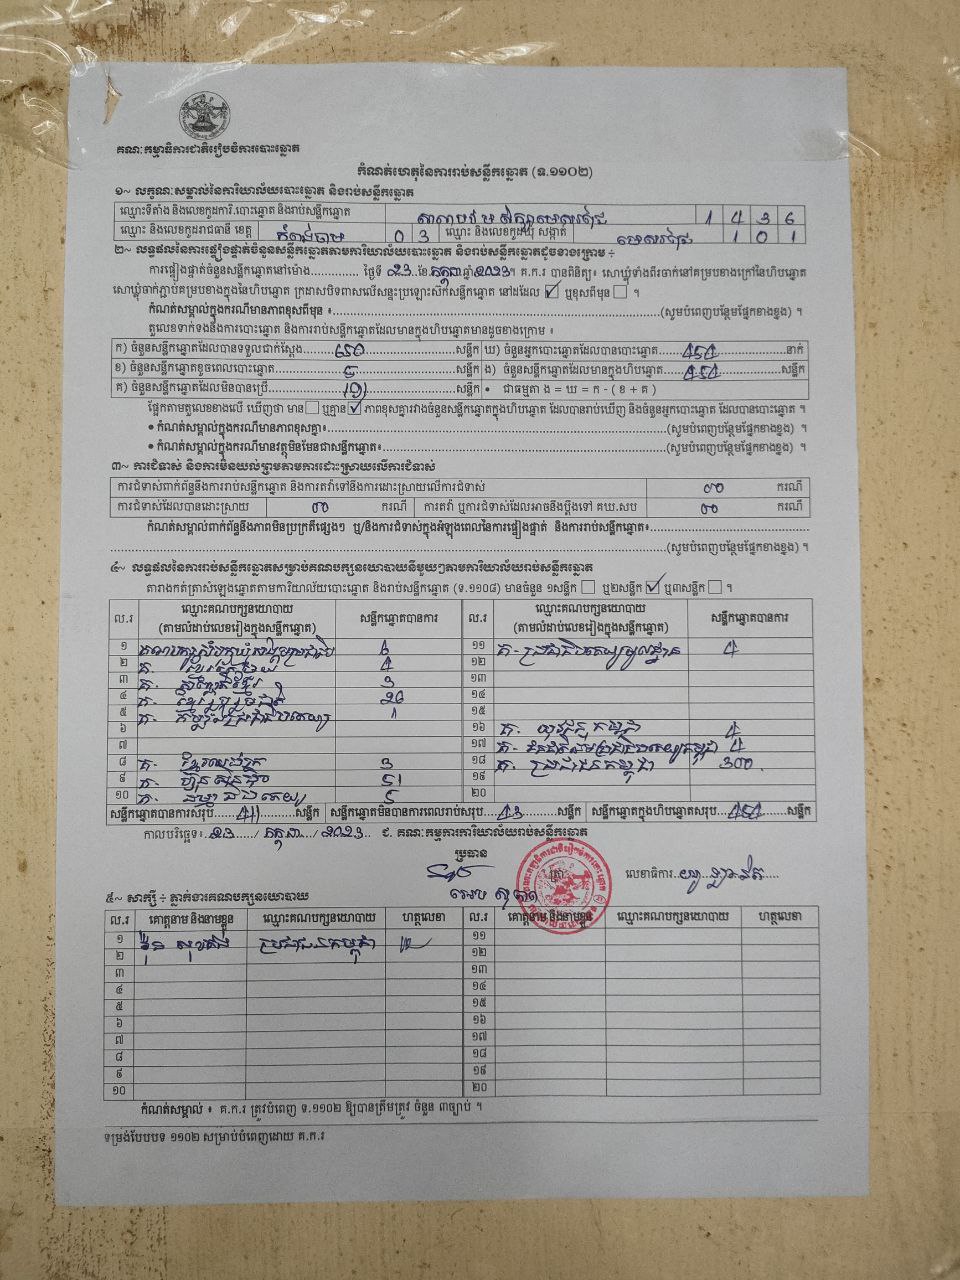 គណៈកម្មាធិការជាតិរៀបចំការបោះឆ្នោត
កំណត់ហេតុនៃការរាប់សន្លឹកឆ្នោត (ទ.១១០២)
១~ លក្ខណៈសម្គាល់នៃការិយាល័យបោះឆ្នោត និងរាប់សន្លឹកឆ្នោត
ឈ្មោះទីតាំង និងលេខកូដការិ.បោះឆ្នោត និងរាប់សន្លឹកឆ្នោត 1 4 3 6
ឈ្មោះ និងលេខកូដរាជធានី ខេត្ត កំពង់ចាម 0 3 ឈ្មោះ និងលេខកូដឃុំ សង្កាត់ 1 0 1
២~ លទ្ធផលនៃការផ្ទៀងផ្ទាត់ចំនួនសន្លឹកឆ្នោតតាមការិយាល័យបោះឆ្នោត និងរាប់សន្លឹកឆ្នោតដូចខាងក្រោម ÷
ការផ្ទៀងផ្ទាត់ចំនួនសន្លឹកឆ្នោតនៅម៉ោង............. ថ្ងៃទី ២៣ ខែ កក្កដា ឆ្នាំ ២០២៣ ។ គ.ក.រ បានពិនិត្យ៖ សោឃ្លុំទាំងពីរចាក់នៅគម្របខាងក្រៅនៃហិបឆ្នោត
សោឃ្លុំចាក់ភ្ជាប់គម្របខាងក្នុងនៃហិបឆ្នោត ក្រដាសបិទពាសលើសន្ទះប្រឡោះសៀកសន្លឹកឆ្នោត នៅដដែល ☑ ឬខុសពីមុន ☐ ។
កំណត់សម្គាល់ក្នុងករណីមានភាពខុសពីមុន ៖ (សូមបំពេញបន្ថែមផ្នែកខាងខ្នង) ។
តួលេខទាក់ទងនឹងការបោះឆ្នោត និងការរាប់សន្លឹកឆ្នោតដែលមានក្នុងហិបឆ្នោតមានដូចខាងក្រោម ៖
ក) ចំនួនសន្លឹកឆ្នោតដែលបានទទួលជាក់ស្តែង ៦៥០ សន្លឹក ឃ) ចំនួនអ្នកបោះឆ្នោតដែលបានបោះឆ្នោត ៤៥៤ នាក់
ខ) ចំនួនសន្លឹកឆ្នោតខូចពេលបោះឆ្នោត ៥ សន្លឹក ង) ចំនួនសន្លឹកឆ្នោតដែលមានក្នុងហិបឆ្នោត ៤៥៤ សន្លឹក
គ) ចំនួនសន្លឹកឆ្នោតដែលមិនបានប្រើ ១៩១ សន្លឹក • ជាធម្មតា ង = ឃ = ក - ( ខ + គ )
ផ្អែកតាមតួលេខខាងលើ ឃើញថា មាន ☐ ឬគ្មាន ☑ ភាពខុសគ្នារវាងចំនួនសន្លឹកឆ្នោតក្នុងហិបឆ្នោត ដែលបានរាប់ឃើញ និងចំនួនអ្នកបោះឆ្នោត ដែលបានបោះឆ្នោត ។
• កំណត់សម្គាល់ក្នុងករណីមានភាពខុសគ្នា៖ (សូមបំពេញបន្ថែមផ្នែកខាងខ្នង) ។
• កំណត់សម្គាល់ក្នុងករណីមានវត្ថុមិនមែនជាសន្លឹកឆ្នោត៖ (សូមបំពេញបន្ថែមផ្នែកខាងខ្នង) ។
៣~ ការជំទាស់ និងការមិនយល់ព្រមតាមការដោះស្រាយលើការជំទាស់
ការជំទាស់ពាក់ព័ន្ធនឹងការរាប់សន្លឹកឆ្នោត និងការតវ៉ាទៅនឹងការដោះស្រាយលើការជំទាស់ ០០ ករណី
ការជំទាស់ដែលបានដោះស្រាយ ០០ ករណី ការតវ៉ា ឬការជំទាស់ដែលអាចនឹងប្តឹងទៅ គឃ.សប ០០ ករណី
កំណត់សម្គាល់ពាក់ព័ន្ធនឹងភាពមិនប្រក្រតីផ្សេងៗ ឬ/និងការជំទាស់ក្នុងអំឡុងពេលនៃការផ្ទៀងផ្ទាត់ និងការរាប់សន្លឹកឆ្នោត៖
(សូមបំពេញបន្ថែមផ្នែកខាងខ្នង) ។
៤~ លទ្ធផលនៃការរាប់សន្លឹកឆ្នោតសម្រាប់គណបក្សនយោបាយនីមួយៗតាមការិយាល័យរាប់សន្លឹកឆ្នោត
តារាងកត់ត្រាសំឡេងឆ្នោតតាមការិយាល័យបោះឆ្នោត និងរាប់សន្លឹកឆ្នោត (ទ.១១០៨) មានចំនួន ១សន្លឹក ☐ ឬ២សន្លឹក ☑ ឬ៣សន្លឹក ☐ ។
ល.រ ឈ្មោះគណបក្សនយោបាយ (តាមលំដាប់លេខរៀងក្នុងសន្លឹកឆ្នោត) សន្លឹកឆ្នោតបានការ ល.រ ឈ្មោះគណបក្សនយោបាយ (តាមលំដាប់លេខរៀងក្នុងសន្លឹកឆ្នោត) សន្លឹកឆ្នោតបានការ
១ ១១ គ. ប្រជាធិបតេយ្យមូលដ្ឋាន ៤
២ គ. ៤ ១២
៣ គ. ៣ ១៣
៤ គ. ខ្មែររួបរួមជាតិ ១៤
៥ គ. ១ ១៥
៦ ១៦ គ. យុវជនកម្ពុជា ៤
៧ ១៧ គ. ៤
៨ គ. ៣ ១៨ គ. ប្រជាជនកម្ពុជា ៣០០
៩ គ. ហ៊្វុនស៊ិនប៉ិច ៥១ ១៩
១០ គ. ធម្មាធិបតេយ្យ ៥ ២០
សន្លឹកឆ្នោតបានការសរុប ៤១១ សន្លឹក សន្លឹកឆ្នោតមិនបានការពេលរាប់សរុប ៤៣ សន្លឹក សន្លឹកឆ្នោតក្នុងហិបឆ្នោតសរុប ៤៥៤ សន្លឹក
កាលបរិច្ឆេទ៖ ២៣ / កក្កដា / ២០២៣ ជ. គណៈកម្មការការិយាល័យរាប់សន្លឹកឆ្នោត
ប្រធាន
លេខាធិការ
៥~ សាក្សី ÷ ភ្នាក់ងារគណបក្សនយោបាយ
ល.រ គោត្តនាម និងនាមខ្លួន ឈ្មោះគណបក្សនយោបាយ ហត្ថលេខា ល.រ គោត្តនាម និងនាមខ្លួន ឈ្មោះគណបក្សនយោបាយ ហត្ថលេខា
១ ប្រជាជនកម្ពុជា ១១
២ ១២
៣ ១៣
៤ ១៤
៥ ១៥
៦ ១៦
៧ ១៧
៨ ១៨
៩ ១៩
១០ ២០
កំណត់សម្គាល់ ៖ គ.ក.រ ត្រូវបំពេញ ទ.១១០២ ឱ្យបានត្រឹមត្រូវ ចំនួន ៣ច្បាប់ ។
ទម្រង់បែបបទ ១១០២ សម្រាប់បំពេញដោយ គ.ក.រ